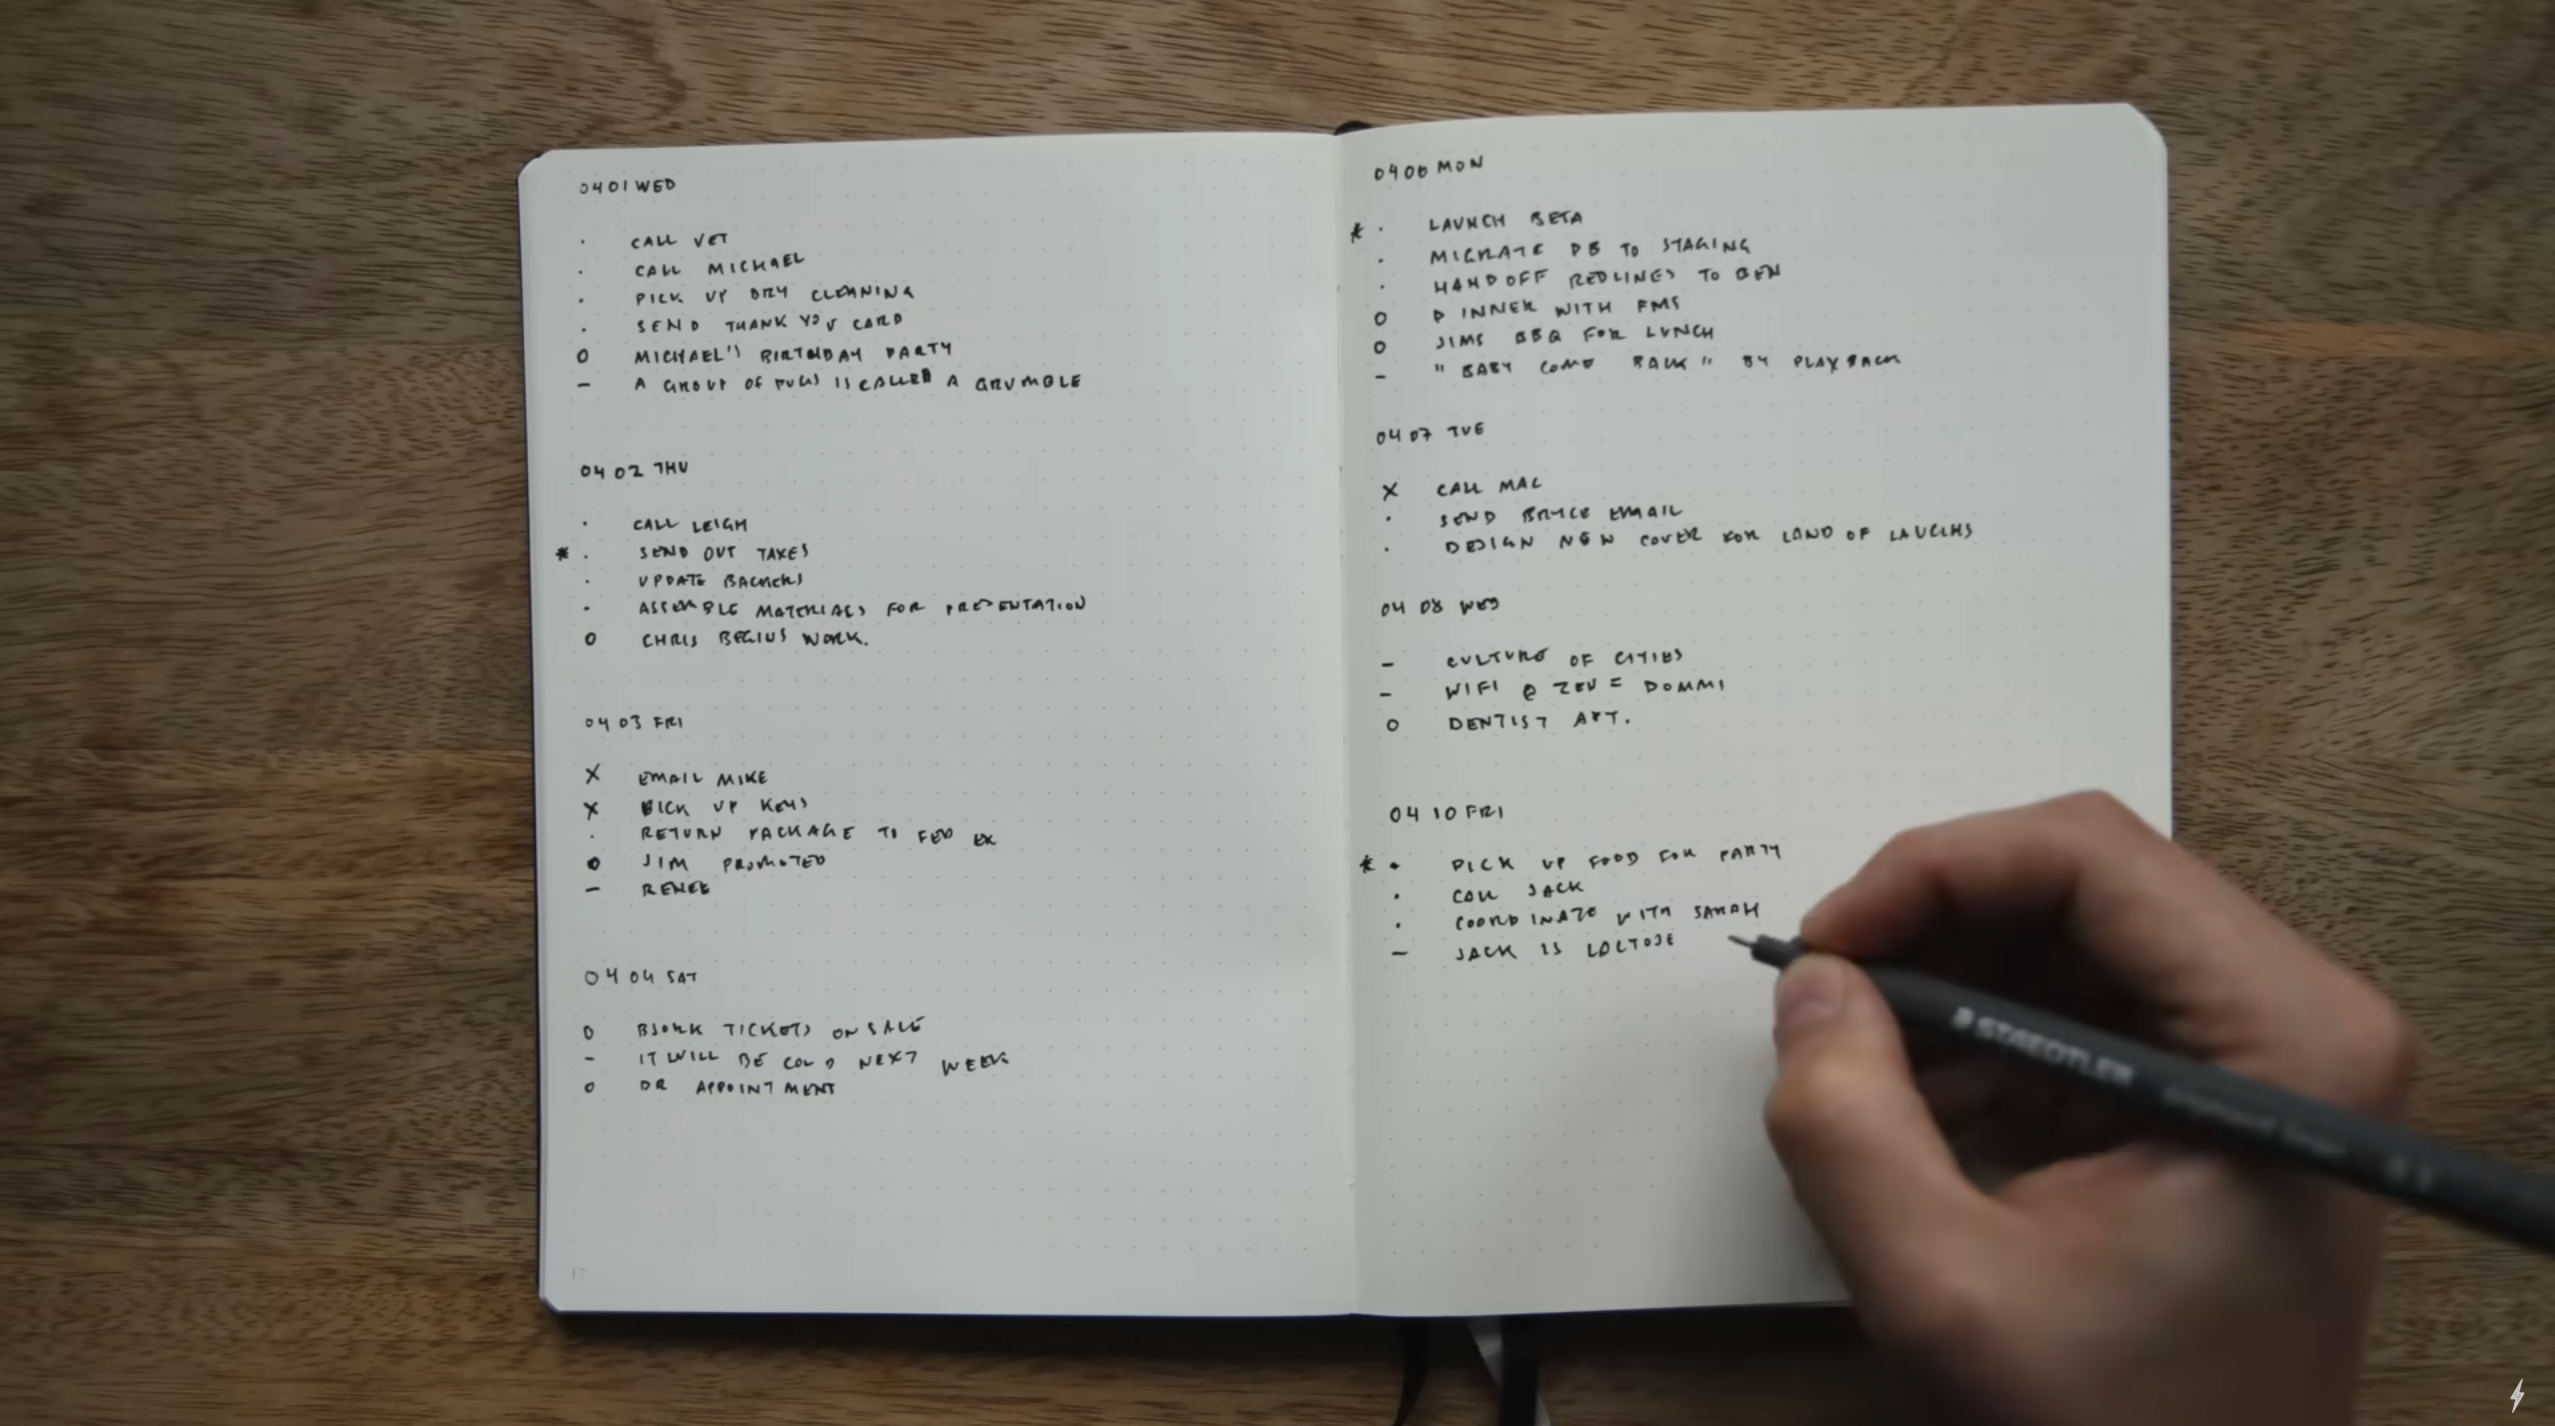 0401 WED
· CALL VET
· CALL MICHAEL
· PICK UP DRY CLEANING
· SEND THANK YOU CARD
O MICHAEL'S BIRTHDAY PARTY
– A GROUP OF PUGS IS CALLED A GRUMBLE
04 02 THU
· CALL LEIGH
* · SEND OUT TAXES
· UPDATE BACKERS
· ASSEMBLE MATERIALS FOR PRESENTATION
O CHRIS BEGINS WORK.
04 03 FRI
X EMAIL MIKE
X PICK UP KEYS
· RETURN PACKAGE TO FED EX
O JIM PROMOTED
– RENEE
04 04 SAT
O BJORK TICKETS ON SALE
– IT WILL BE COLD NEXT WEEK
O DR APPOINTMENT
17
0406 MON
* · LAUNCH BETA
· MIGRATE DB TO STAGING
· HANDOFF REDLINES TO BEN
O DINNER WITH FMS
O JIMS BBQ FOR LUNCH
– "BABY COME BACK" BY PLAYBACK
04 07 TUE
X CALL MAC
· SEND BRYCE EMAIL
· DESIGN NEW COVER FOR LAND OF LAUGHS
04 08 WED
– CULTURE OF CITIES
– WIFI @ ZEN = DOMM1
O DENTIST APT.
04 10 FRI
* · PICK UP FOOD FOR PARTY
· CALL JACK
· COORDINATE WITH SARAH
– JACK IS LACTOSE
STAEDTLER